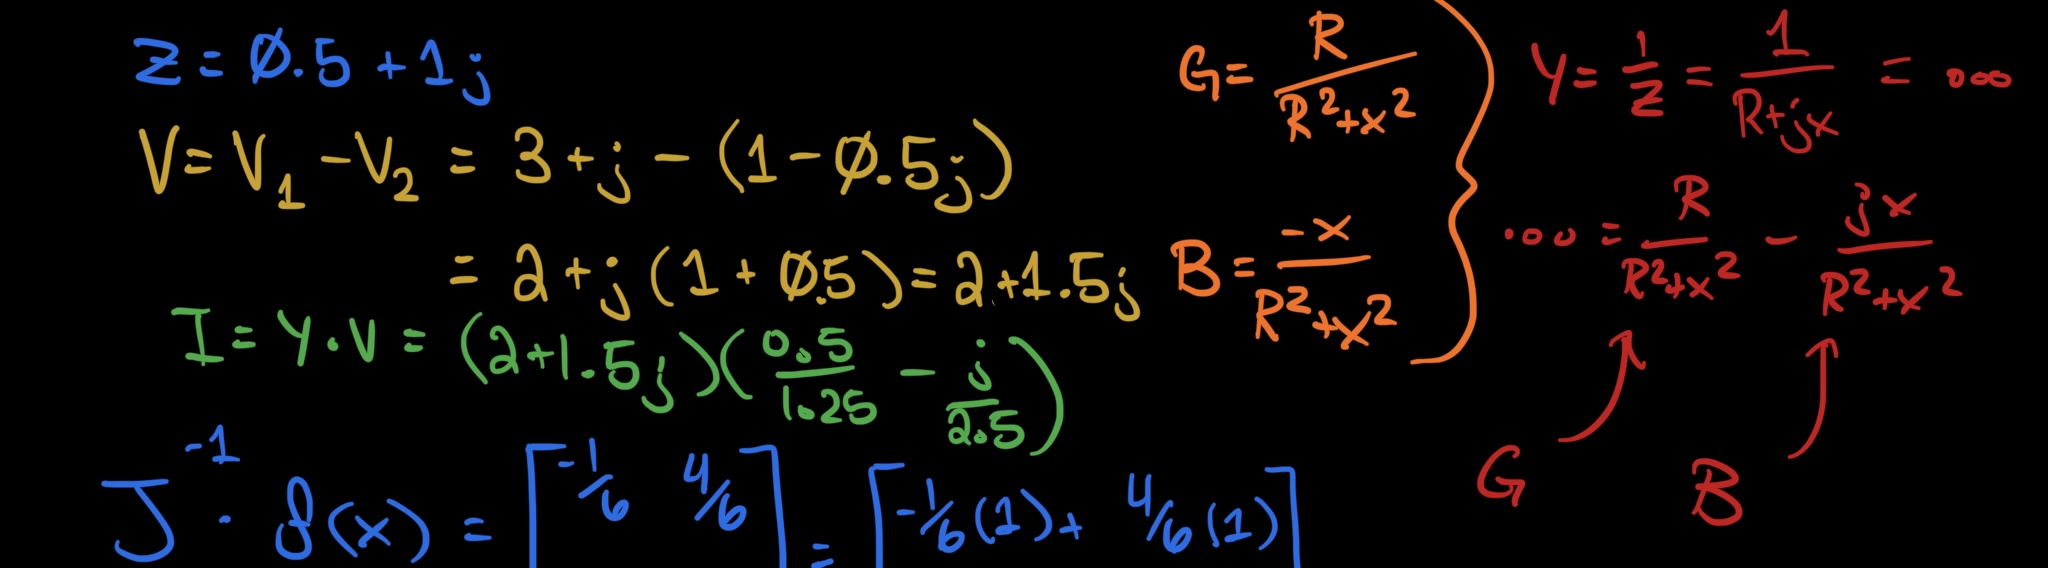 Z = 0.5 + 1j
V = V₁ - V₂ = 3 + j - (1 - 0.5j)
= 2 + j (1 + 0.5) = 2 + 1.5j
I = Y · V = (2 + 1.5j)(0.5/1.25 - j/2.5)
J⁻¹ · f(x) = [-1/6 4/6] = [-1/6(1) + 4/6(1)]
G = R/(R² + x²)
B = -x/(R² + x²)
Y = 1/Z = 1/(R + jx) = ...
... = R/(R² + x²) - jx/(R² + x²)
G B